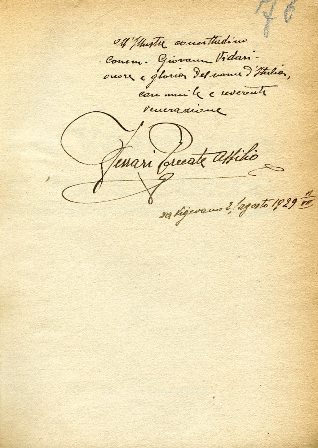 76
all'Illustre concittadino
Comm. Giovanni Vidari
onore e gloria del nome d'Italia,
con umile e reverente
venerazione
Ferrari Trecate Attilio
da Vigevano 2, agosto 1929